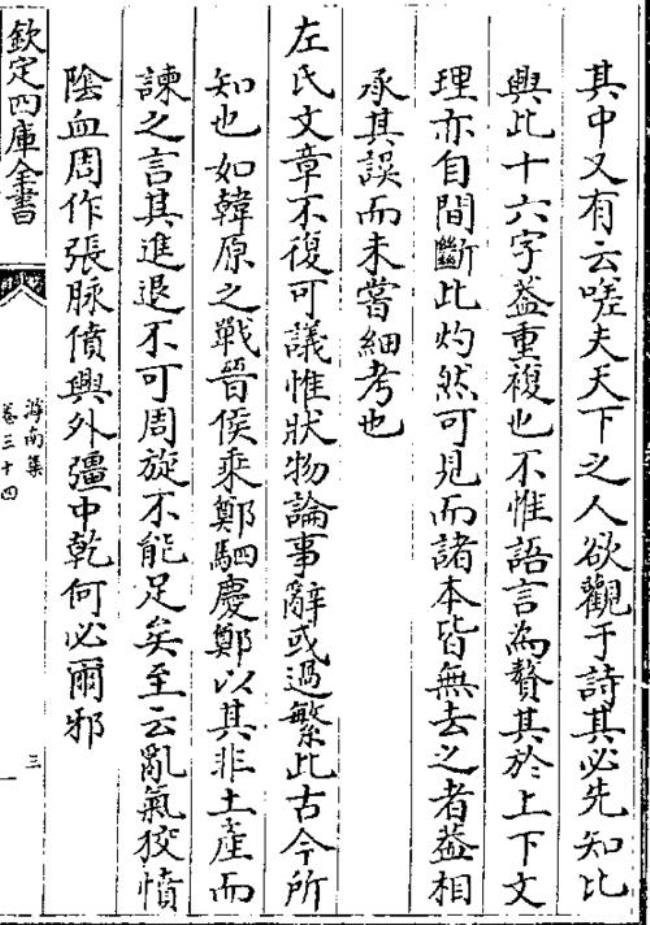 其中又有云嗟夫天下之人欲觀于詩其必先知比
興比十六字葢重複也不惟語言為贅其於上下文
理亦自間斷此灼然可見而諸本皆無去之者葢相
承其誤而未嘗細考也
左氏文章不復可議惟狀物論事辭或過繁此古今所
知也如韓原之戰晉侯乘鄭駟慶鄭以其非土產而
諫之言其進退不可周旋不能足矣至云亂氣狡憤
陰血周作張脉僨興外彊中乾何必爾邪
欽定四庫全書
滹南集
卷三十四
三